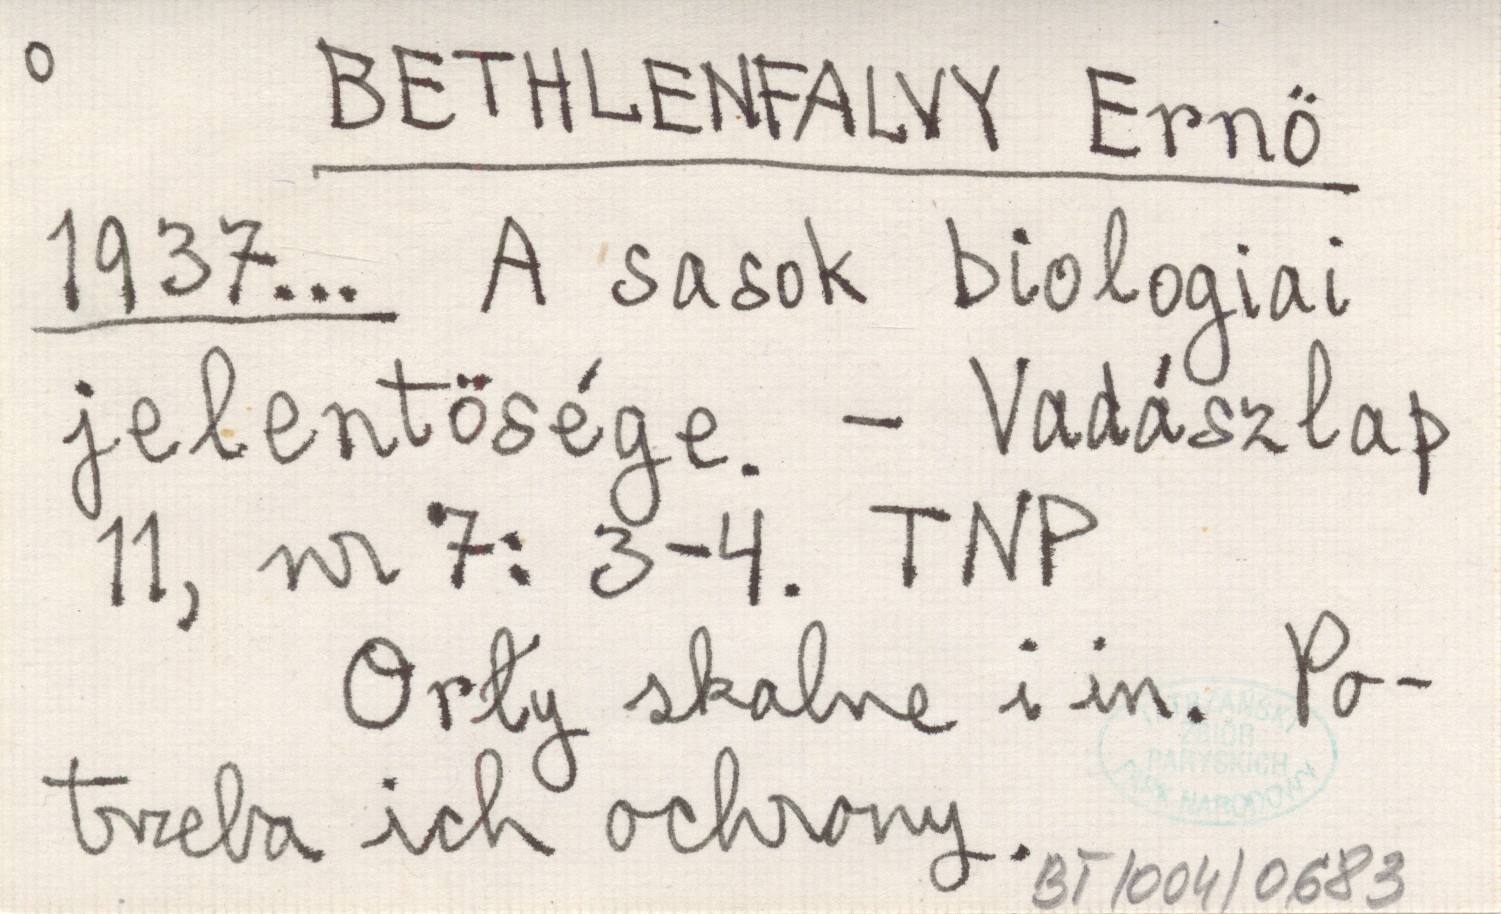 o
BETHLENFALVY Ernö
1937... A sasok biologiai
jelentösége. - Vadászlap
11, nr 7: 3-4. TNP
Orły skalne i in. Po-
trzeba ich ochrony.
TATRZAŃSKI
ZBIÓR
PARYSKICH
PARK NARODOWY
BT/004/0683